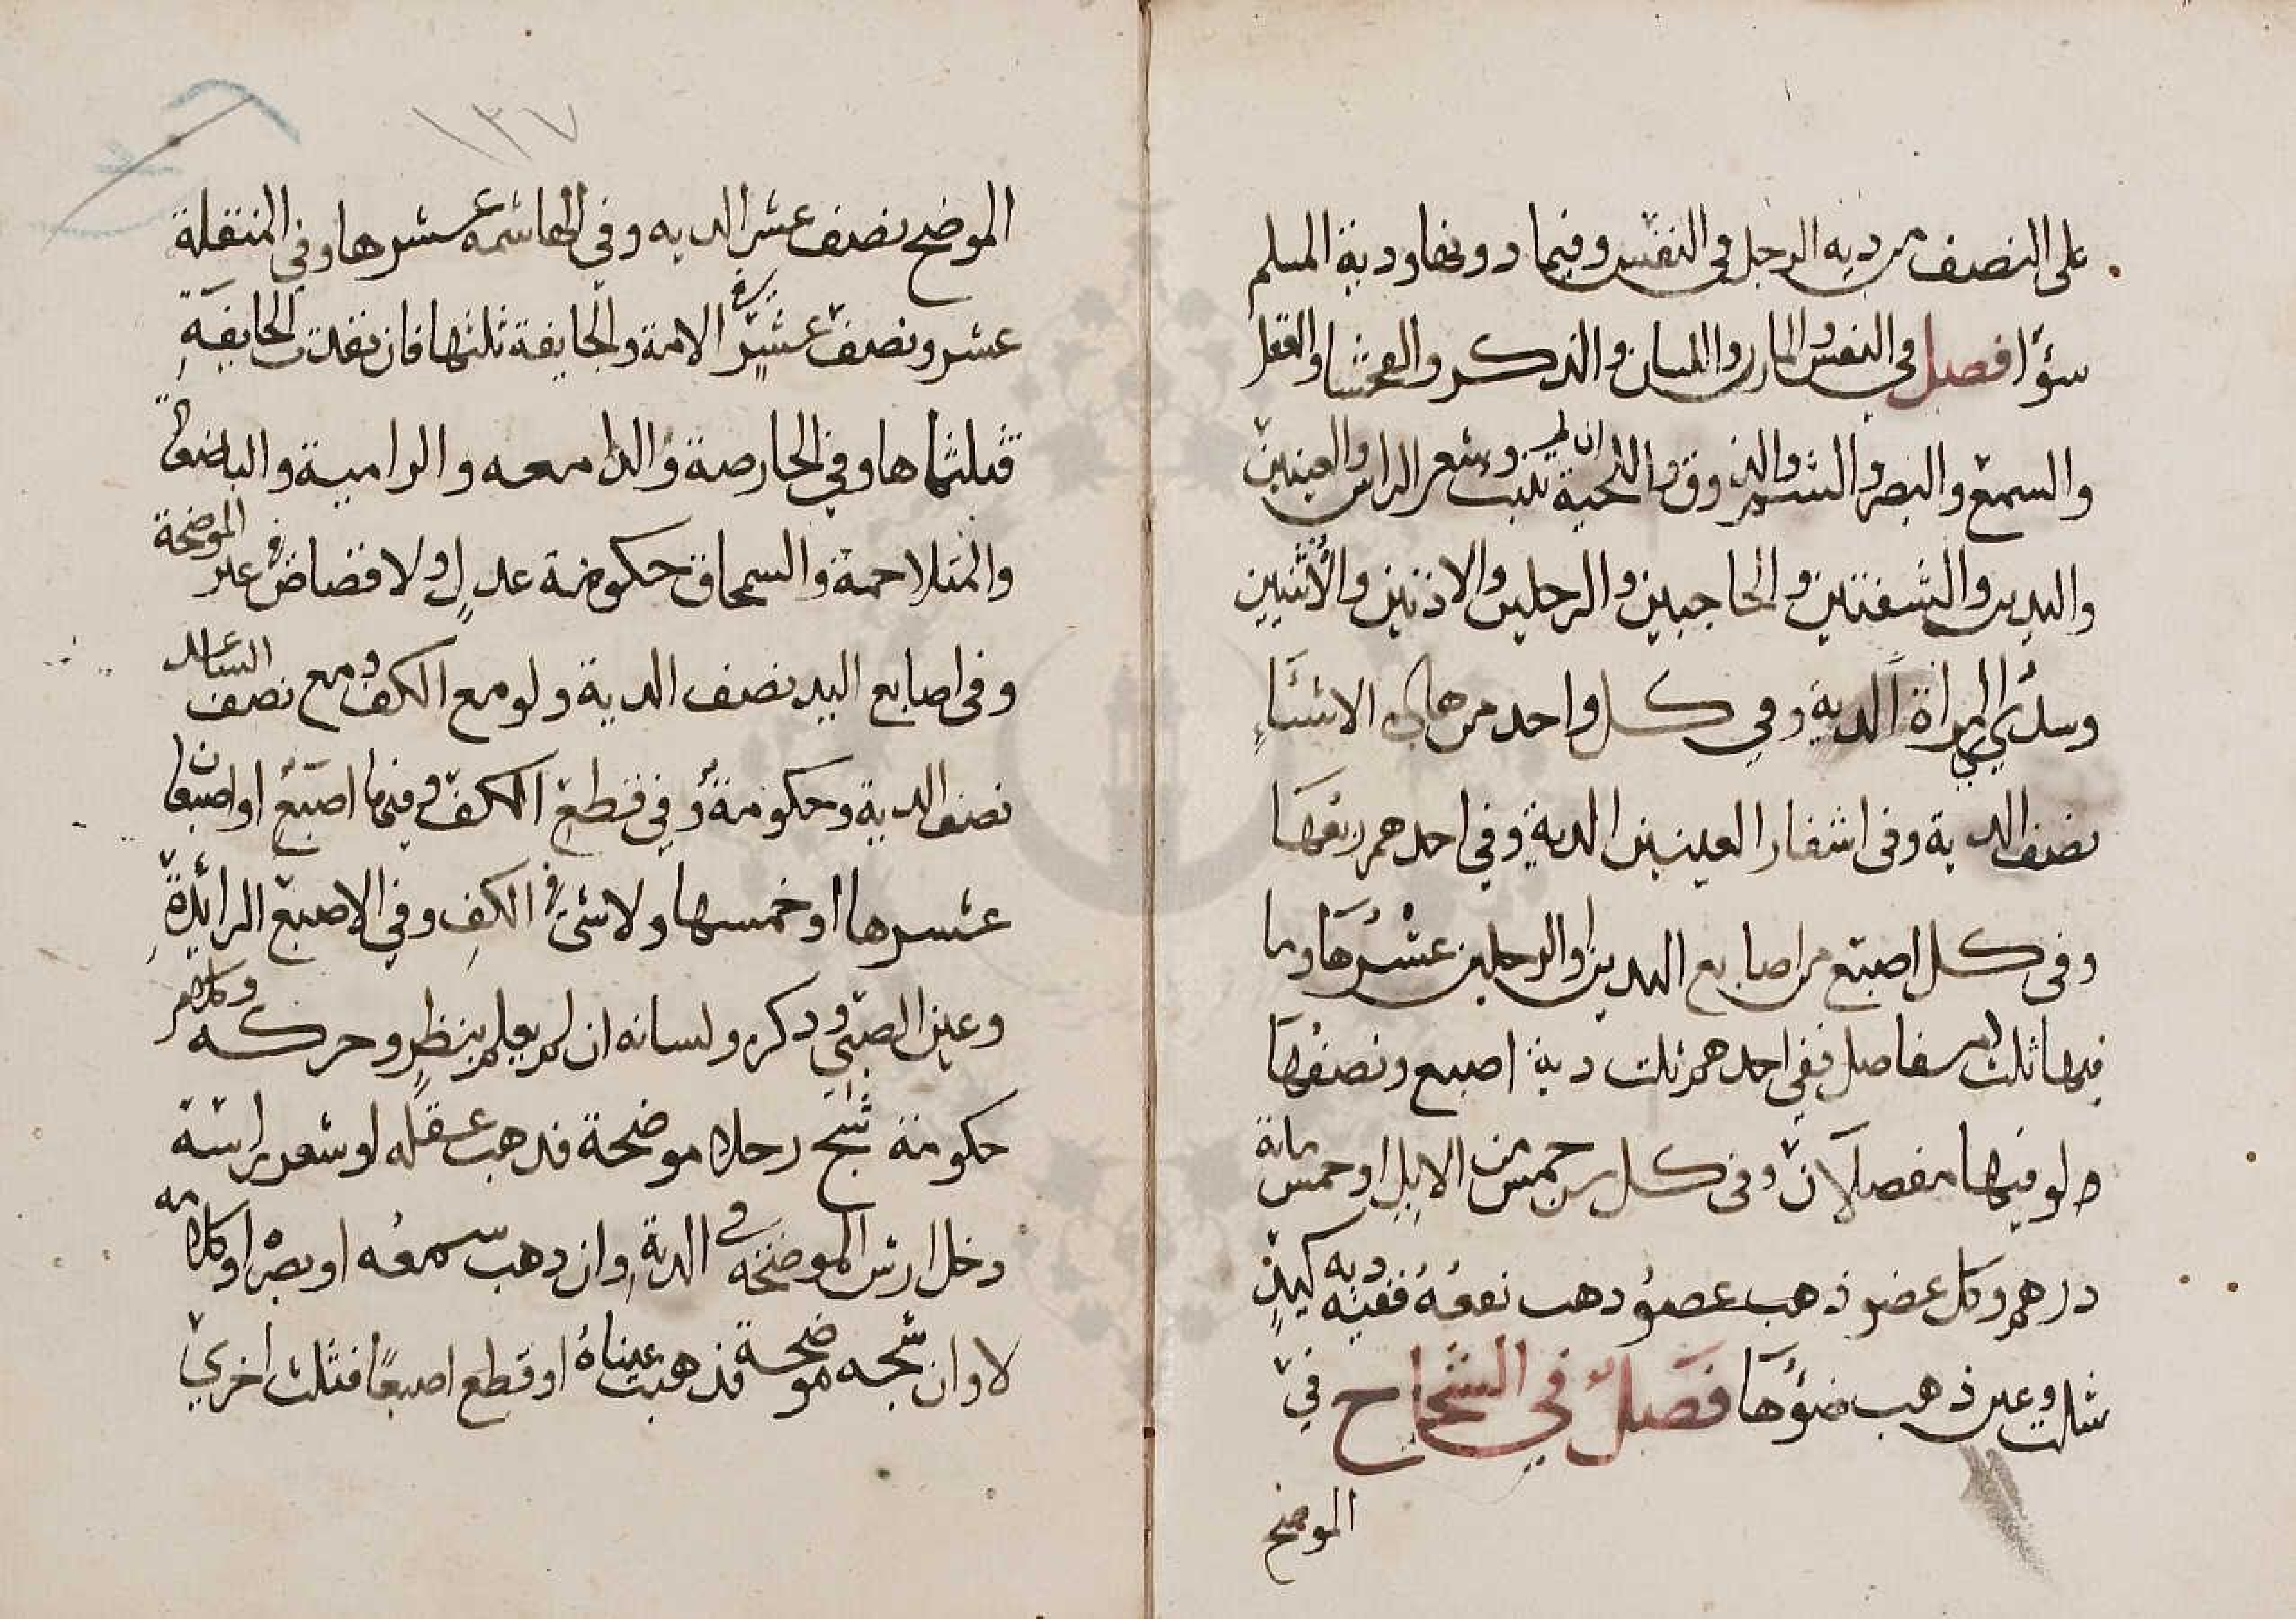 على النصف من دية الرجل في النفس وفيما دونها ودية المسلم
سوا فصل في النفس والمارن واللسان والذكر والحشفة والعقل
والسمع والبصر والشم والذوق واللحية ان لم تنبت وشعر الراس والعينين
واليدين والشفتين والحاجبين والرجلين والاذنين والأنثيين
وثديي المراة الدية وفي كل واحد من هذه الاشياءِ
نصف الدية وفي اشفار العينين الدية وفي احدهم ربعها
وفي كل اصبع من اصابع اليدين او الرجلين عشرها وما
فيها ثلث مفاصل ففي احدهم ثلث دية اصبع ونصفها
لو فيها مفصلان وفي كل سن خمس من الابل او خمس مائة
درهم وكل عضو ذهب نفعه ففيه دية كيدٍ
شلت وعين ذهب ضوؤها فصل في الشجاج في
الموضح
١٣٧
الموضح نصف عشر الديه وفي الهاشمة عشرها وفي المنقلة
عشر ونصف عشر الامة والجايفة ثلثها فان نفدت الجايفة
فثلثاها وفي الحارصة والدامعه والدامية والباضعة
والمتلاحمة والسمحاق حكومة عدلٍ ولا قصاص في غير الموضحة
وفي اصابع اليد نصف الدية ولو مع الكف ومع نصف الساعد
نصف الدية وحكومة وفي قطع الكف وفيها اصبع او اصبعان
عشرها او خمسها ولا شئ في الكف وفي الاصبع الزائدة
وعين الصبي وذكره ولسانه ان لم يعلم بنظر وحركه وكلام
حكومة شج رجلا موضحة فذهب عقله او شعر راسه
دخل ارش الموضحة في الدية وان ذهب سمعه او بصره او كلامه
لا وان شجه موضحة فذهبت عيناه او قطع اصبعًا فشلت اخري